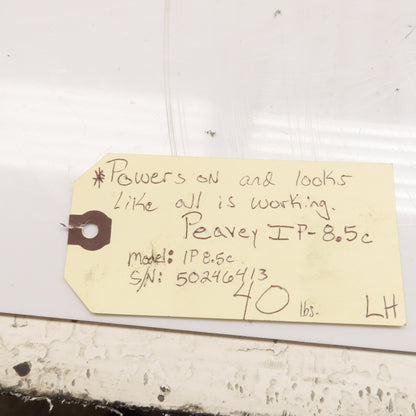 *Powers on and looks
Like all is working.
Peavey IP-8.5c
Model: IP 8.5c
S/N: 50246413
40 lbs. LH